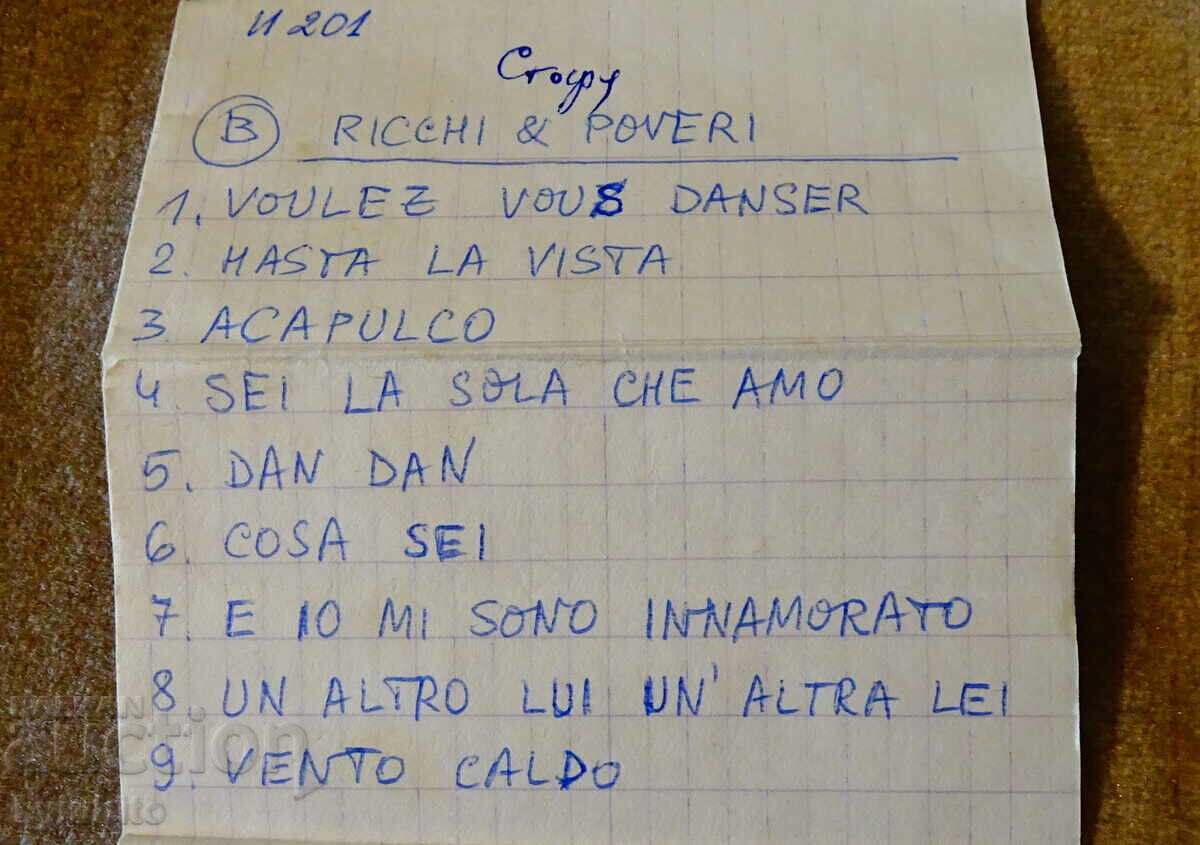 И 201
B RICCHI & POVERI
1. VOULEZ VOUS DANSER
2. HASTA LA VISTA
3 ACAPULCO
4. SEI LA SOLA CHE AMO
5. DAN DAN
6. COSA SEI
7. E IO MI SONO INNAMORATO
8. UN ALTRO LUI UN' ALTRA LEI
9. VENTO CALDO
auction